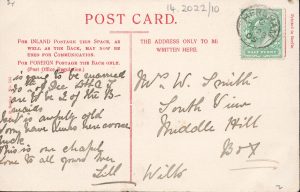 14. 2022/10
POST CARD.
FOR INLAND POSTAGE THIS SPACE, AS
WELL AS THE BACK, MAY NOW BE
USED FOR COMMUNICATION.
FOR FOREIGN POSTAGE THE BACK ONLY.
(Post Office Regulation.)
THE ADDRESS ONLY TO BE
WRITTEN HERE.
HALF PENNY
is going to be married
30 of Dec
be 2 of the B-
maids
is only old
have been here
luck
This is our chapel
love to all yours ever
Lill
Mrs W. Smith
South View
Middle Hill
Box
Wilts